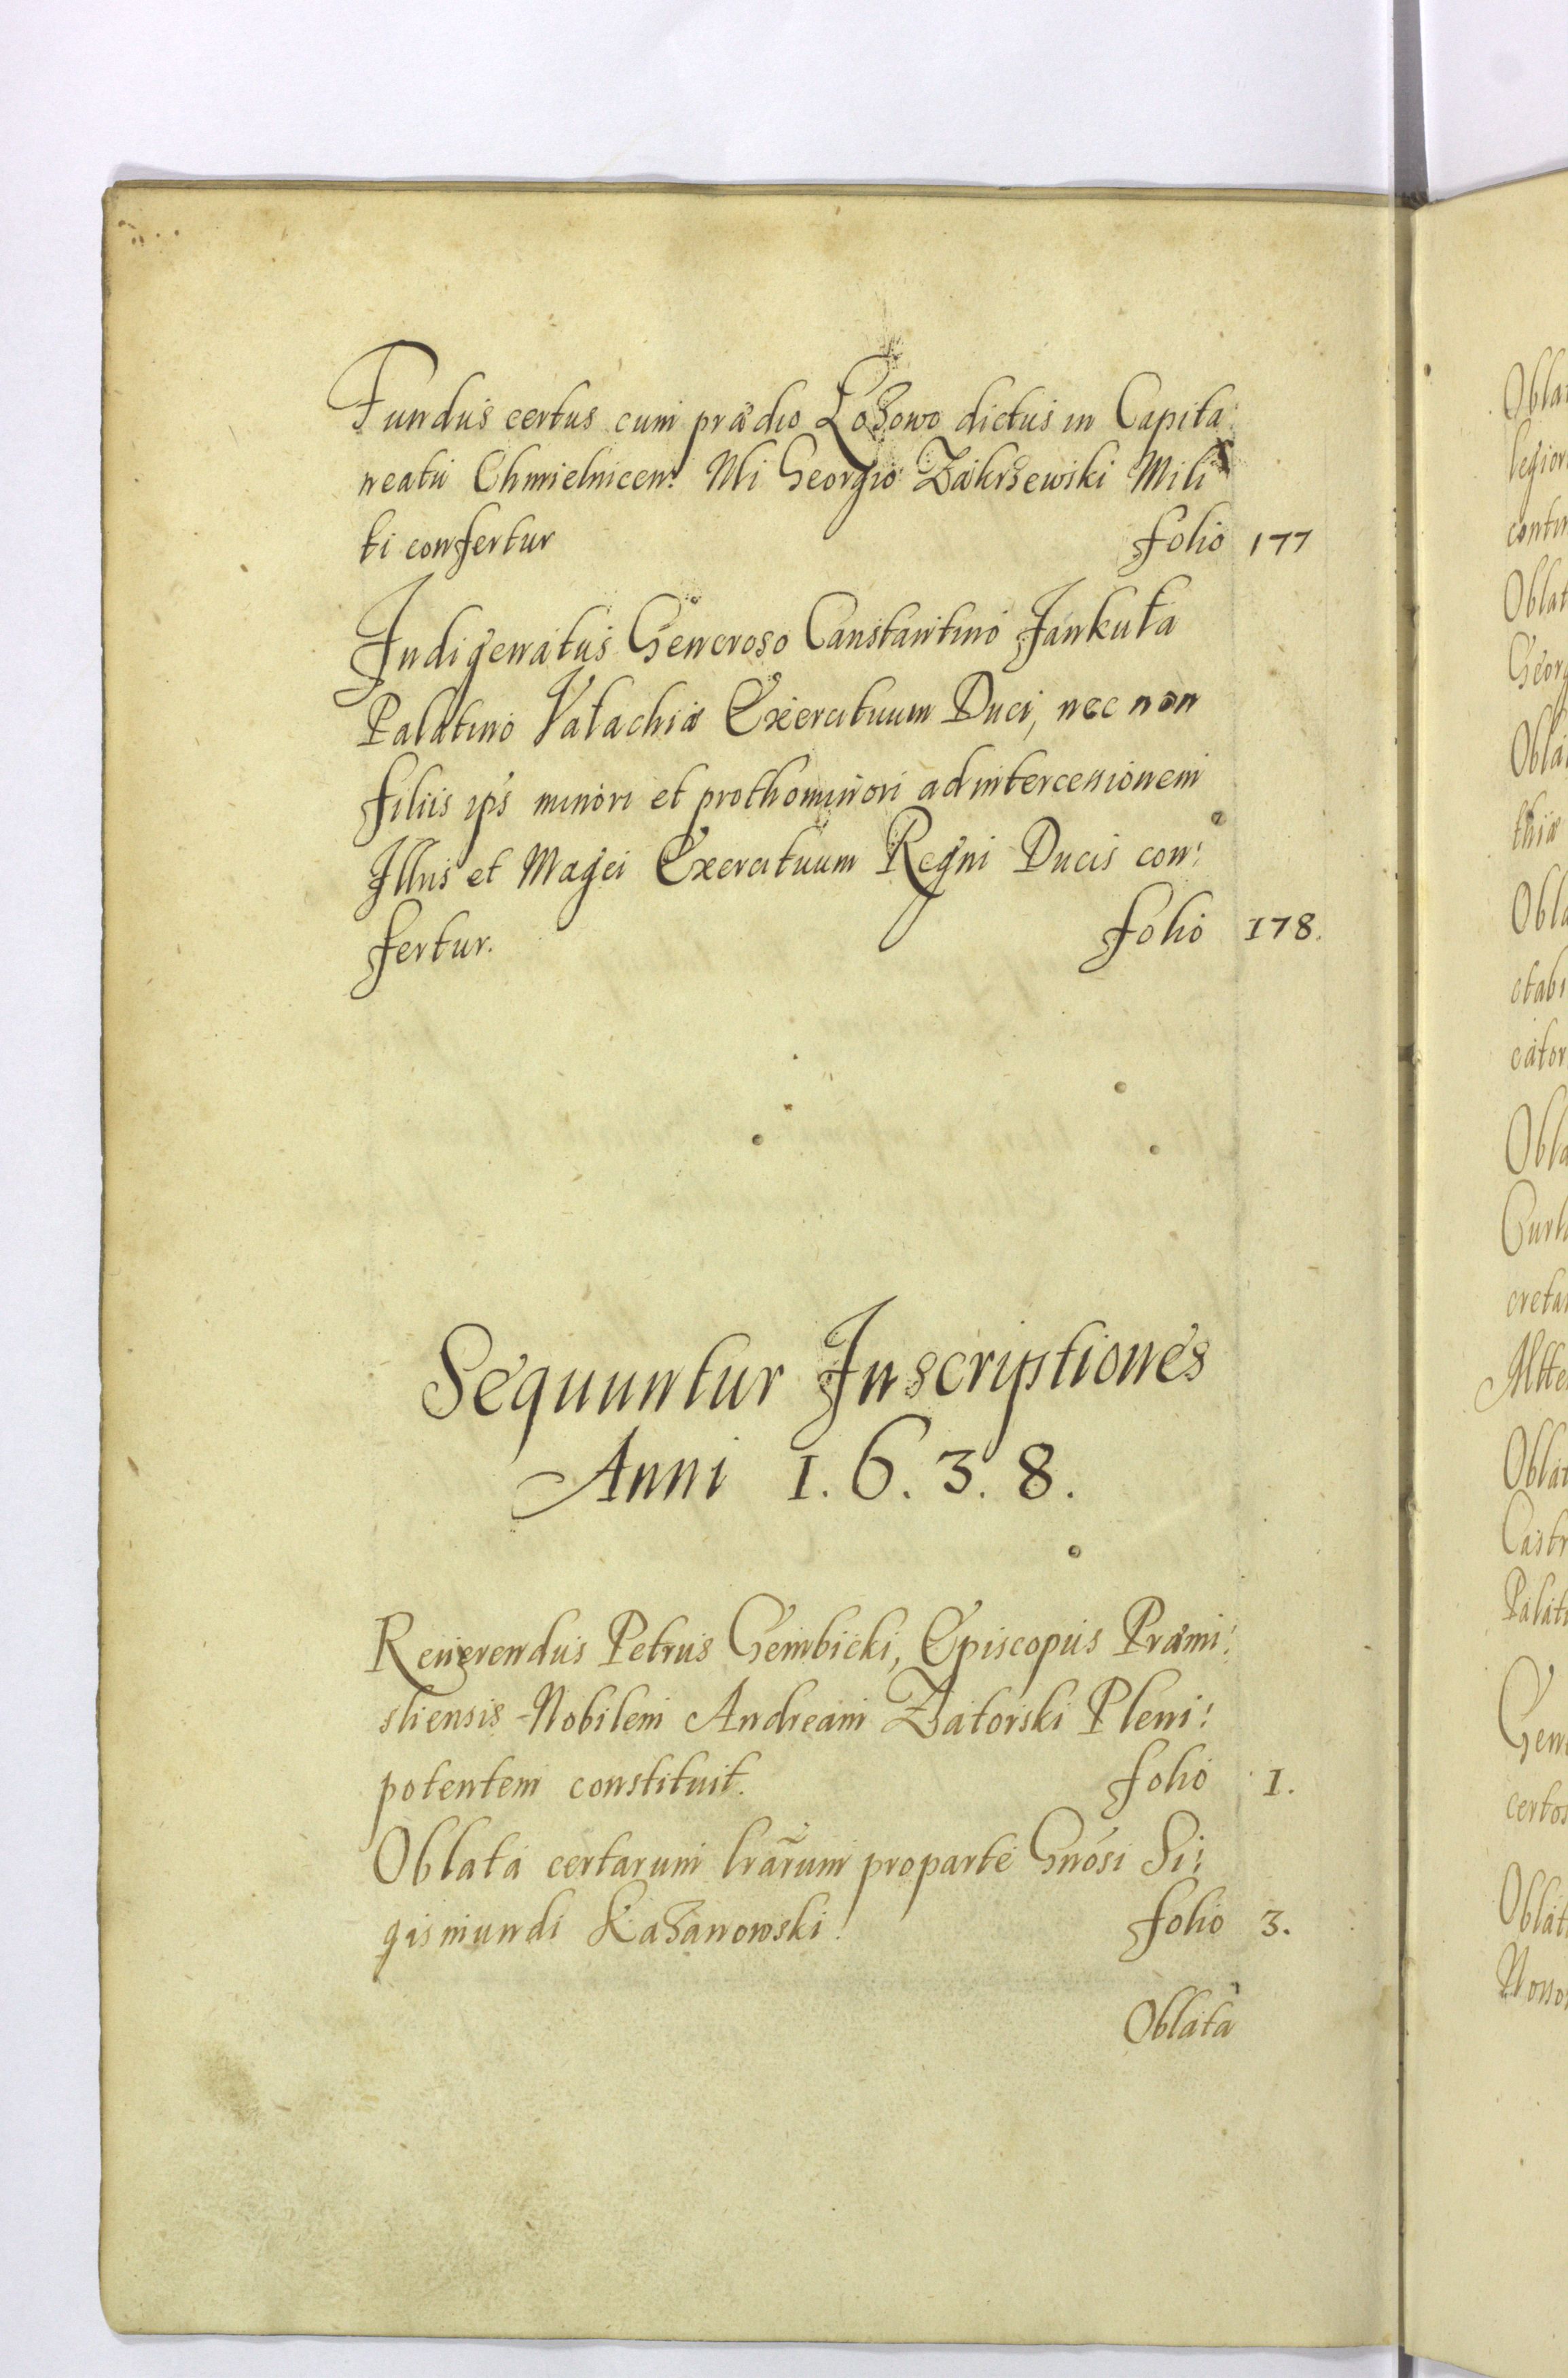 Fundus certus cum prædio Lozowo dictus in Capita
neatu Chmielnicen: Nli Georgio Zakrzewski Mili
ti confertur folio 177
Indigenatus Generoso Constantino Jankuła
Palatino Valachiæ Exercituum Duci, nec non
filiis ips minori et prothominori ad intercessionem
Illris et Magci Exercituum Regni Ducis con:
fertur. folio 178.
Sequuntur Inscriptiones
Anni 1.6.3.8.
Reuerendus Petrus Gembicki, Episcopus Præmi:
sliensis Nobilem Andream Zatorski Pleni:
potentem constituit. folio 1.
Oblata certarum lrarum pro parte Gnosi Si:
gismundi Kazanowski. folio 3.
Oblata